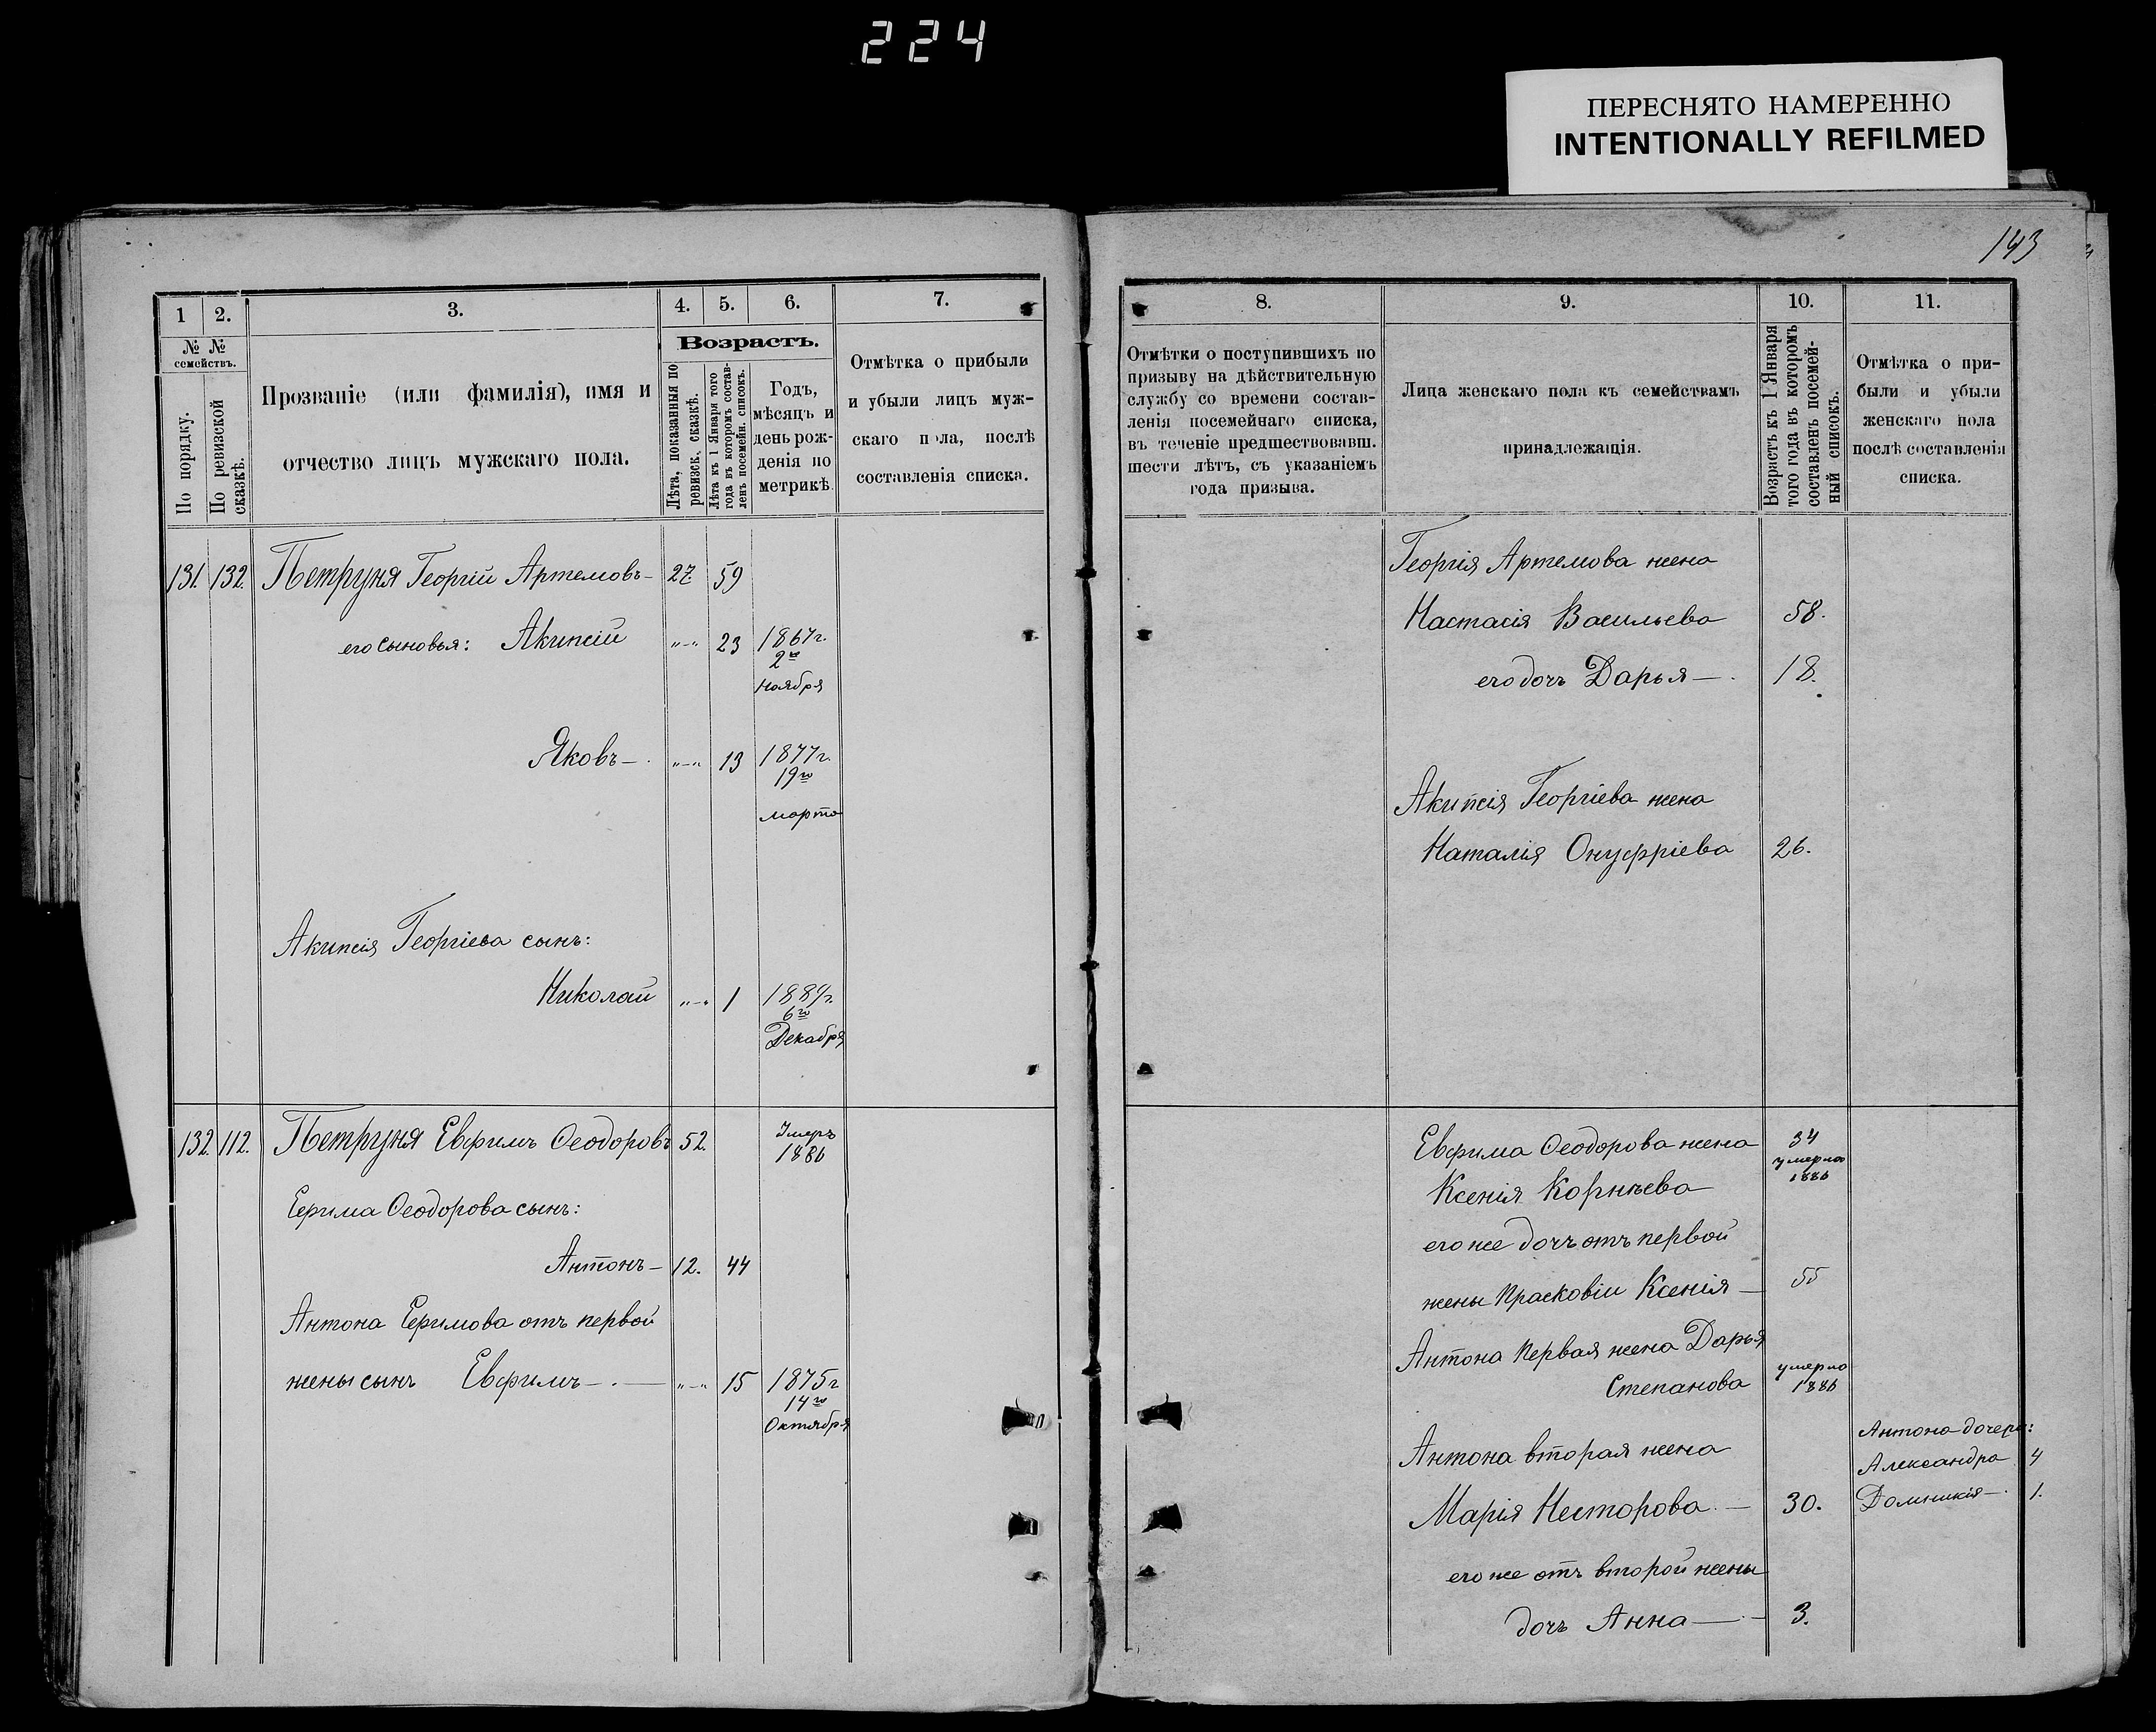 224
ПЕРЕСНЯТО НАМЕРЕННО
INTENTIONALLY REFILMED
143
1
2.
3.
4.
5.
6.
7.
№ №
семействъ.
По порядку.
По ревизской
сказкѣ.
Прозваніе (или фамилія), имя и
отчество лицъ мужскаго пола.
Возрастъ.
Лѣта, показанныя по
ревизск. сказкѣ.
Лѣта къ 1 Января того
года въ которомъ состав-
ленъ посемейн. списокъ.
Годъ,
мѣсяцъ и
день рож-
денія по
метрикѣ.
Отмѣтка о прибыли
и убыли лицъ муж-
скаго пола, послѣ
составленія списка.
131. 132. Петруня Георгій Артемовъ— 27 59
его сыновья: Акипсій „—„ 23 1867г.
2го
Ноября
Яковъ—. „—„ 13 1877г.
19го
марта
Акипсія Георгіева сынъ:
Николай „—„ 1 1889г.
6го
Декабря
132. 112. Петруня Евфимъ Ѳеодоровъ 52. Умеръ
1886
Ефима Ѳеодорова сынъ:
Антонъ— 12. 44
Антона Ефимова отъ первой
жены сынъ Евфимъ—.— „—„ 15 1875г
14го
Октября
8.
9.
10.
11.
Отмѣтки о поступившихъ по
призыву на дѣйствительную
службу со времени состав-
ленія посемейнаго списка,
въ теченіе предшествовавш.
шести лѣтъ, съ указаніемъ
года призыва.
Лица женскаго пола къ семействамъ
принадлежащія.
Возрастъ къ 1 Января
того года въ которомъ
составленъ посемей-
ный списокъ.
Отмѣтка о при-
были и убыли
женскаго пола
послѣ составленія
списка.
Георгія Артемова жена
Настасія Васильева 58.
его дочь Дарья—. 18.
Акипсія Георгіева жена
Наталія Онуфріева 26.
Евфима Ѳеодорова жена 34
умерла
1886
Ксенія Корнѣева
его же дочь отъ первой
жены Прасковіи Ксенія— 55
Антона первая жена Дарья
Степанова умерла
1886
Антона вторая жена
Марія Несторова.— 30.
Антона дочери:
Александра 4
Домникія—. 1.
его же отъ второй жены
дочь Анна—.— 3.